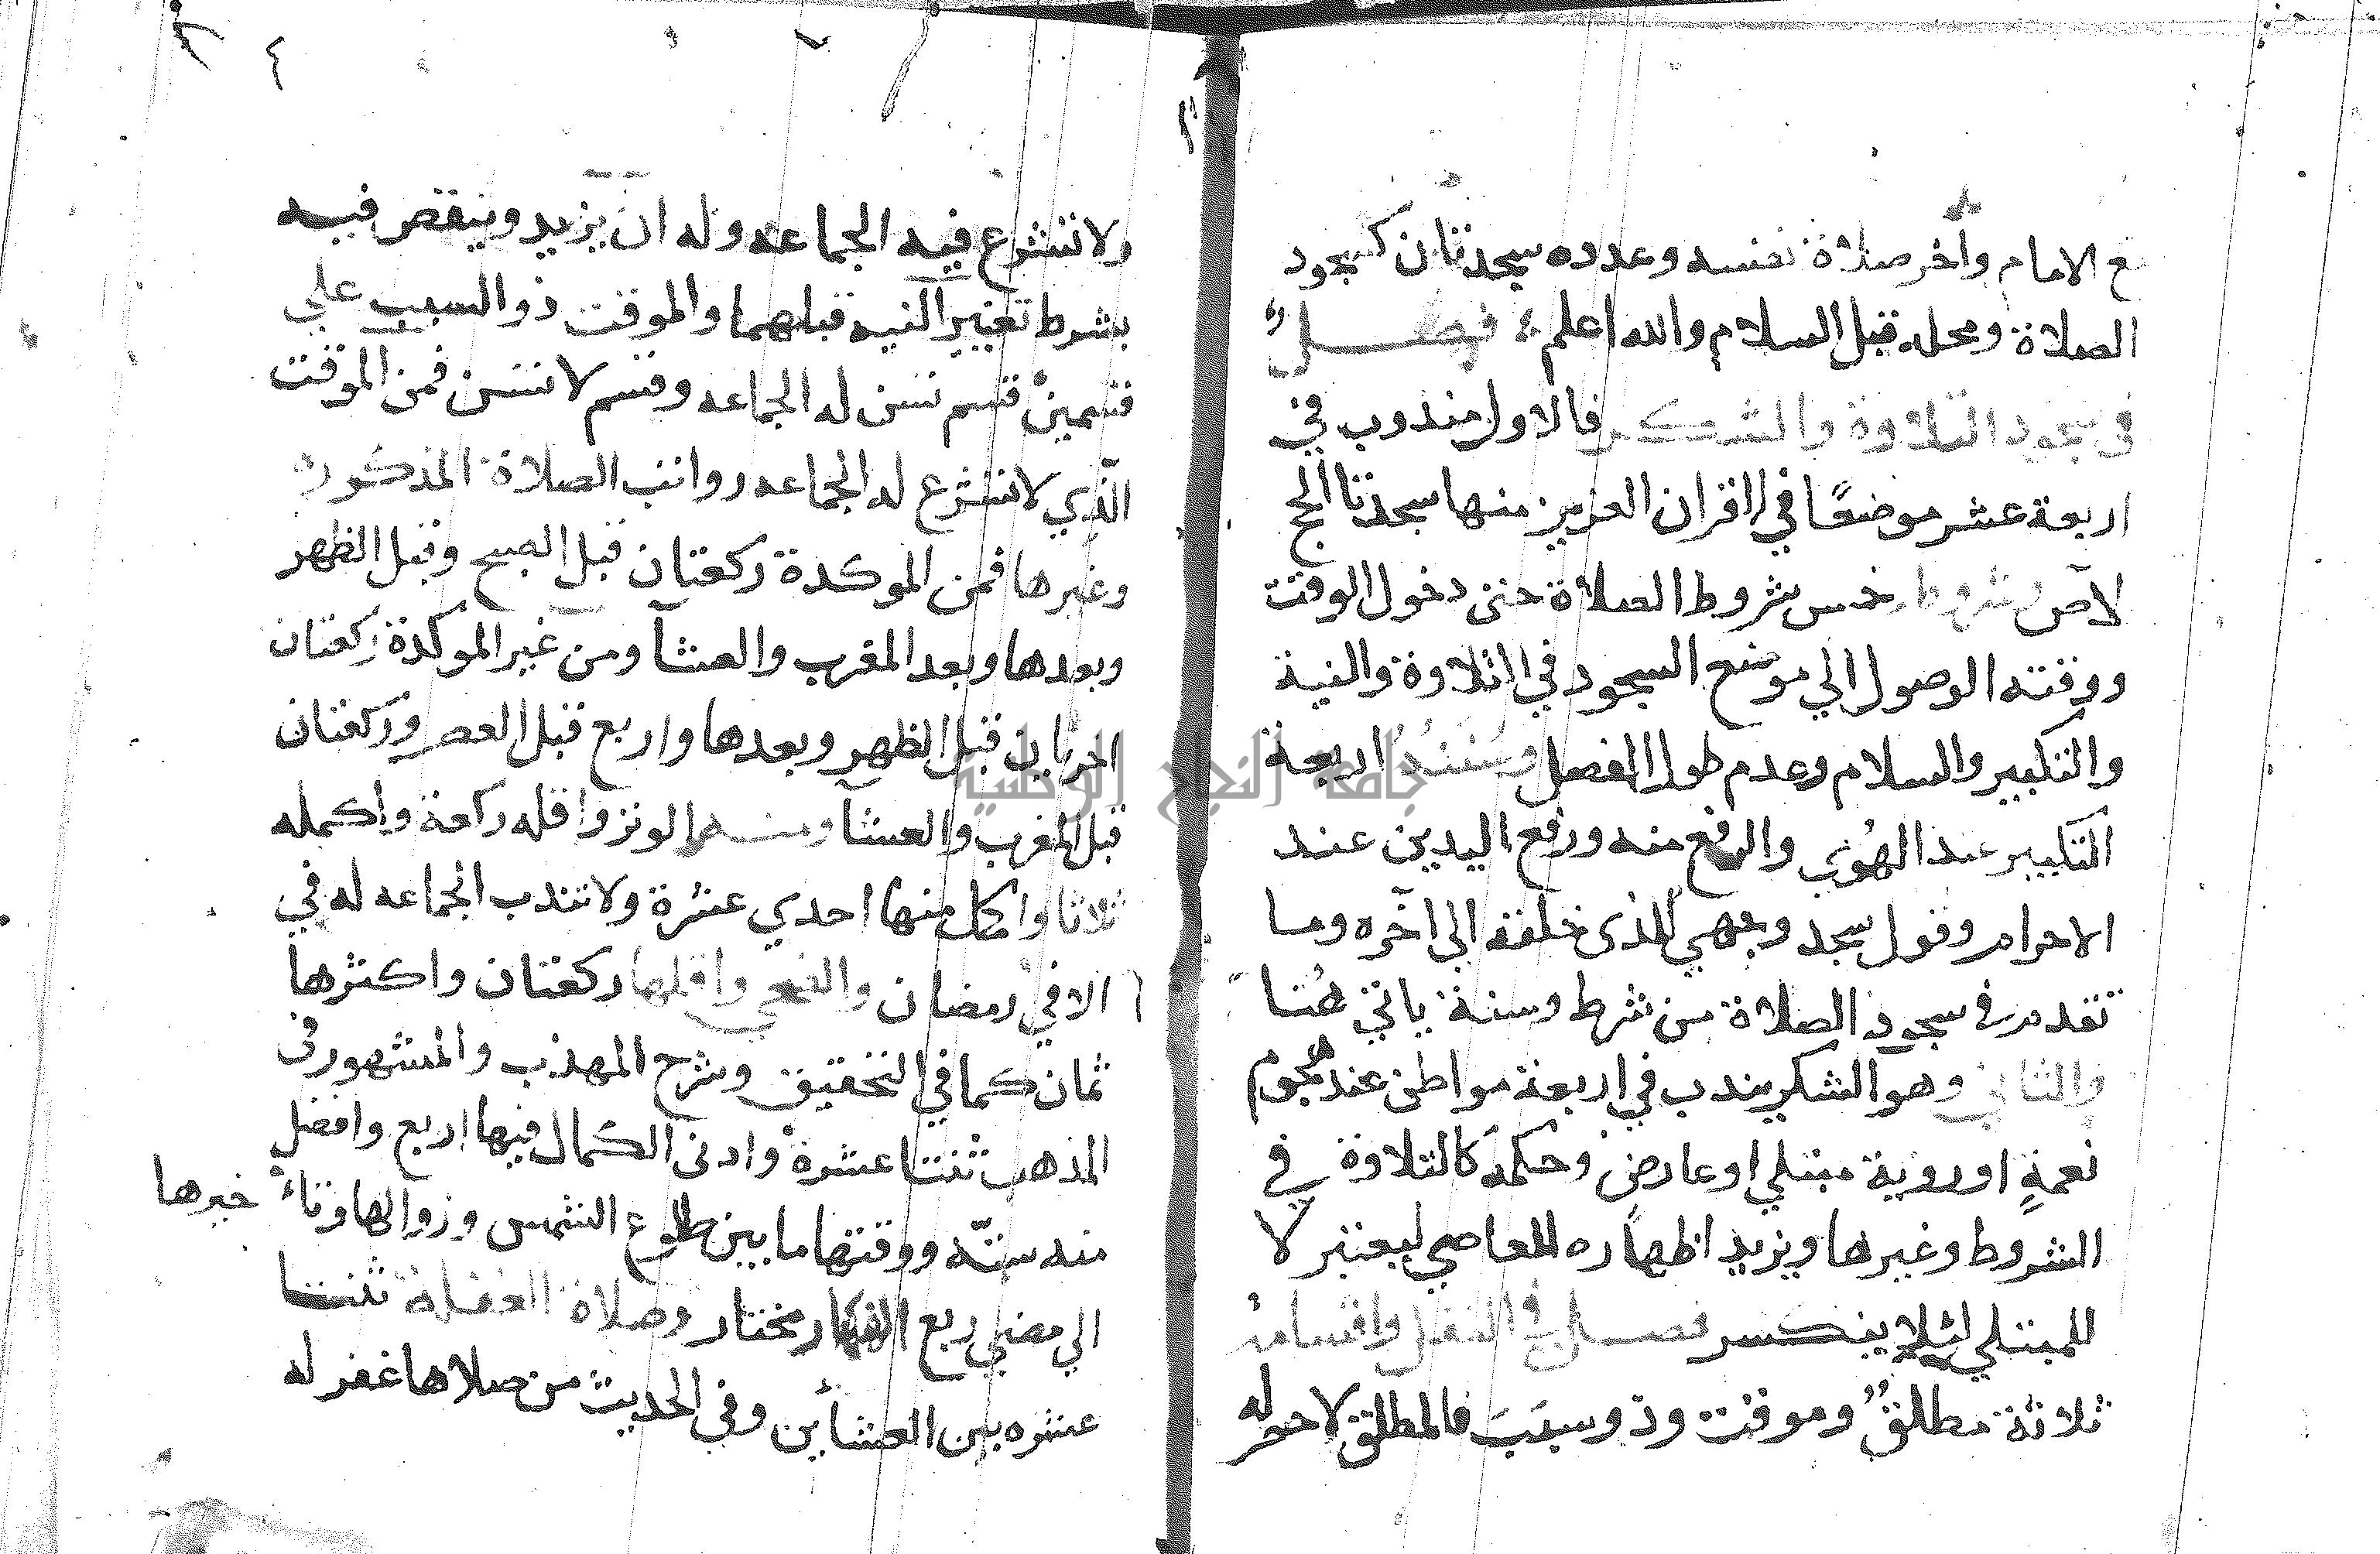 مع الامام وآخر صلاة نفسه وعدده سجدتان كسجود
الصلاة ومحله قبل السلام والله اعلم فصل
في سجود التلاوة والشكر فالاول مندوب في
اربعة عشر موضعًا في القران العزيز منها سجدتا الحج
لا ص وشروطه خمس شروط الصلاة حتى دخول الوقت
ووقته الوصول الي موضع السجود في التلاوة والنية
والتكبير والسلام وعدم طول الفصل وسننه اربعة
التكبير عند الهوي والرفع منه ورفع اليدين عند
الاحرام وقول سجد وجهي للذي خلقه الى آخره وما
تقدم في سجود الصلاة من شرط وسنة ياتي هنا
والثاني وهو الشكر يندب في اربعة مواطن عند هجوم
نعمةٍ او روية مبتلي او عارض وحكمه كالتلاوة في
الشروط وغيرها ويزيد اظهاره للعاصي ليعتبر لا
للمبتلي لئلا ينكسر فصل في النفل واقسامه
ثلاثة مطلق وموقت وذو سبب فالمطلق لا حصر له
٤
ولا تشرع فيه الجماعه وله ان يزيد وينقص فيه
بشرط تغيير النيه قبلهما والموقت ذو السبب علي
قسمين قسم تسن له الجماعه وقسم لا تسن فمن الموقت
الذي لا تشرع له الجماعه رواتب الصلاة المذكوره
وغيرها فمن الموكدة ركعتان قبل الصبح وقبل الظهر
وبعدها وبعد المغرب والعشآ ومن غير الموكدة ركعتان
اخرتان قبل الظهر وبعدها واربع قبل العصر وركعتان
قبل المغرب والعشآ ومنه الوتر واقله ركعة واكمله
ثلاثا واكمل منها احدي عشرة ولا تندب الجماعه له في
الا في رمضان والضحي واقلها ركعتان واكثرها
ثمان كما في التحقيق وشرح المهذب والمشهور في
المذهب ثنتا عشرة وادنى الكمال فيها اربع وافضل
منه ستّه ووقتها ما بين طلوع الشمس وزوالها وتاخيرها
الي مضي ربع النهار مختار وصلاة الغفلة ثنتا
عشره بين العشائين وفي الحديث من صلاها غفر له
جامعة النجاح الوطنية